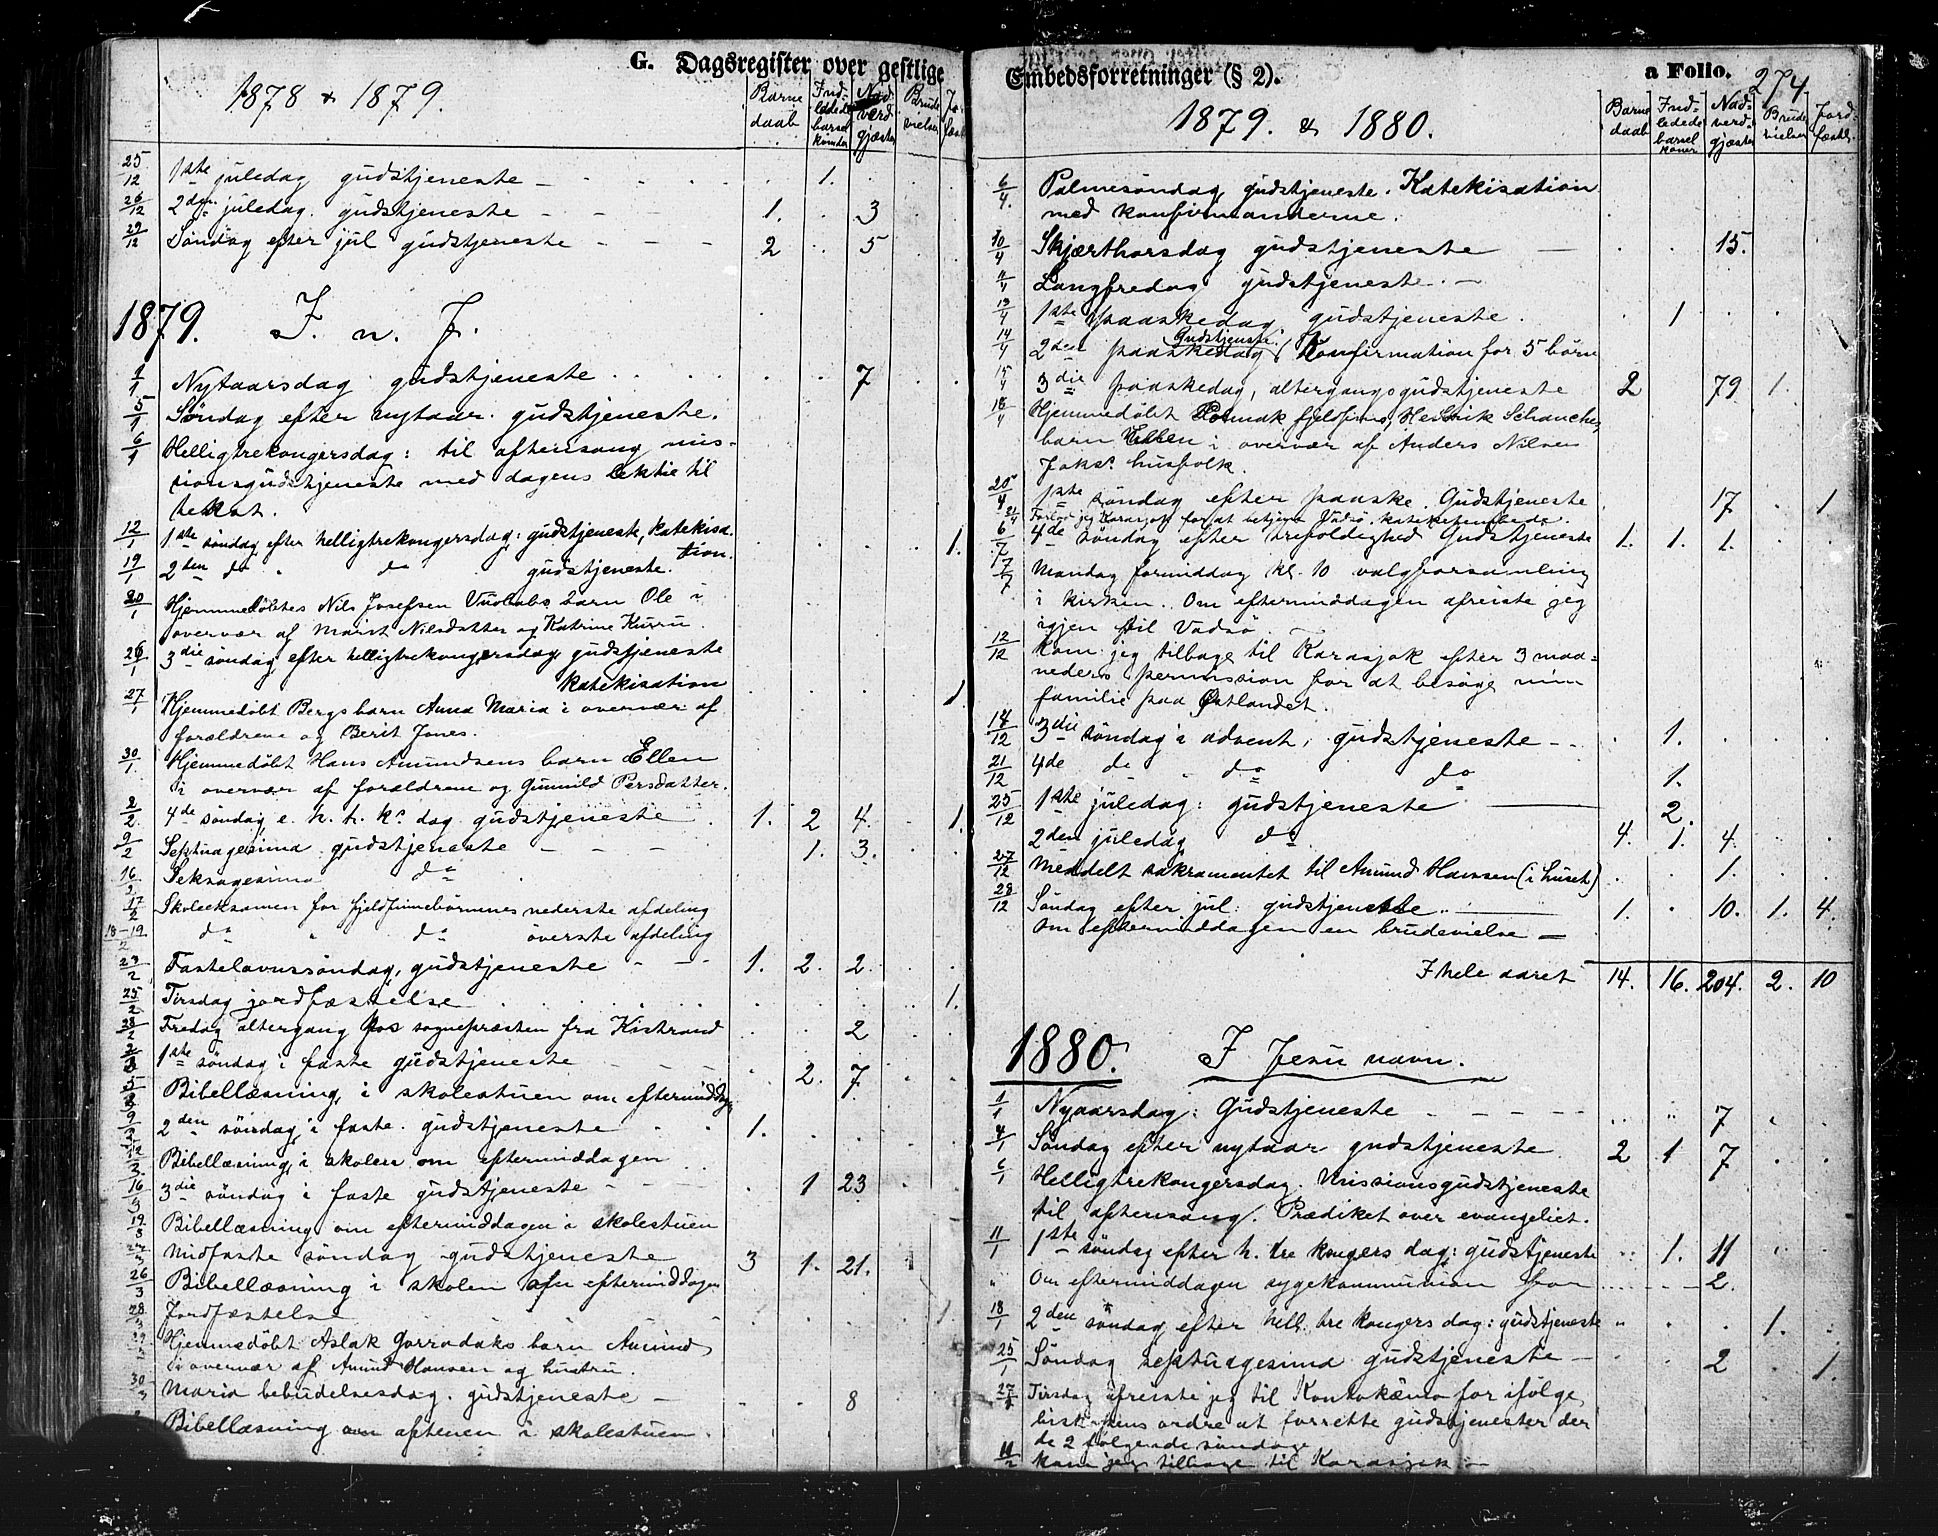 G. Dagsregister over gestlige
1878 & 1879.
Barne daab
Ind- ledede barsel kvinder
Nad- verd gjæster
Brude vielser
25/12 1ste juledag gudstjeneste - 1.
26/12 2den juledag. gudstjeneste - - - 1. 3
29/12 Søndag efter jul gudstjeneste - - - 2 5
1879. I. n. J.
1/1 Nytaarsdag gudstjeneste 7
5/1 Søndag efter nytaar. gudstjeneste.
6/1 Helligtrekongersdag: til aftensang mis-
sionsgudstjeneste med dagens lektie til
tekst.
12/1 1ste søndag efter helligtrekongersdag: gudstjeneste, katekisa- 1.
tion.
19/1 2den do " do gudstjeneste.
20/1 Hjemmedøbtes Nils Josefsen barn Ole i
overvær af Marit Nilsdatter og Katrine Kurru.
26/1 3die søndag efter helligtrekongersdag gudstjeneste
katekisation 1
27/1 Hjemmedøbt Bergs barn Anna Maria i overvær af
forældrene og Berit Jones.
30/1 Hjemmedøbt Hans Amundsens barn Ellen
i overvær af forældrene og Gunnild Persdatter.
2/2 4de søndag e. h. t. k.s dag gudstjeneste 1. 2 4. 1.
9/2 Septuagesima gudstjeneste - - - 1. 3.
16/2 Seksagesima do
17/2 Skoleeksamen for fjeldfinnebørnenes nederste afdeling
18-19/2 do " do øverste afdeling
23/2 Fastelavnssøndag, gudstjeneste - - 1. 2. 2.
25/2 Tirsdag jordfæstelse 1.
28/2 Fredag altergang hos sognepræsten fra Kistrand 2
2/3 1ste søndag i faste gudstjeneste - - - 2. 7.
5/3 Bibellæsning, i skolestuen om eftermiddag
9/3 2den søndag i faste. gudstjeneste 1.
12/3 Bibellæsning, i skolen om eftermiddagen
16/3 3die søndag i faste gudstjeneste - - - 1 23
19/3 Bibellæsning om eftermiddagen i skolestuen
Midfaste søndag gudstjeneste 3 1. 21.
26/3 Bibellæsning i skolen om eftermiddagen
28/3 Jordfæstelse 1
29/3 Hjemmedøbt Aslak barn Amund
i overvær af Amund Hansen og hustru.
30/3 Maria bebudelsesdag. gudstjeneste - 8
Bibellæsning om aftenen i skolestuen.
Embedsforretninger (§ 2).
a Folio. 274
1879. & 1880.
Barne daab
Ind- ledede barsel koner
Nad- verd- gjæster
Brude vielser
Jord- fæstel.
6/4. Palmesøndag gudstjeneste. Katekisation
med konfirmanderne.
10/4 Skjærthorsdag gudstjeneste - 15.
11/4 Langfredag gudstjeneste. -
13/4 1ste paaskedag gudstjeneste. 1
Gudstjenste.
14/4 2den paaskedag / Konfirmation for 5 børn
15/4 3die paaskedag, altergangsgudstjeneste 2 79 1.
18/4 Hjemmedøbt fjeldfins, Hendrik Schanches
barn Ellen i overvær af Anders Nilsen
husfolk.
20/4 1ste søndag efter paaske. Gudstjeneste 17 1
21/4 Forlod jeg Karasjok for at betjene Vadsø kateketembede.
6/7 4de søndag efter trefoldighed Gudstjeneste 1. 1. 1.
7/7 Mandag formiddag kl. 10 valgforsamling
i kirken. Om eftermiddagen afreiste jeg
igjen til Vadsø
12/12 Kom jeg tilbage til Karasjok efter 3 maa-
neders permission for at besøge min
familie paa Østlandet.
14/12 3die søndag i advent, gudstjeneste - 1.
21/12 4de do " do do 1.
25/12 1ste juledag: gudstjeneste 2.
2den juledag do 4. 1. 4.
27/12 Meddelt sakramentet til Amund Hansen (i huset) 1.
28/12 Søndag efter jul: gudstjeneste 1. 10. 1. 4.
Om eftermiddagen en brudevielse -
I hele aaret 14. 16. 204. 2. 10
1880. I Jesu navn.
1/1 Nyaarsdag: Gudstjeneste - - - - 7
4/1 Søndag efter nytaar gudstjeneste 2 1 7
6/1 Helligtrekongersdag. Missionsgudstjeneste
til aftensang. Prædiket over evangeliet.
11/1 1ste søndag efter h. tre kongers dag: gudstjeneste 1. 11
" Om eftermiddagen sygekommunion for 2.
18/1 2den søndag efter hell. tre kongers dag: gudstjeneste 1.
25/1 Søndag septuagesima gudstjeneste - 2 1.
27/1 Tirsdag afreiste jeg til Koutokæino for ifølge
biskopens ordre at forrette gudstjenester der
de 2 følgende søndage
11/2 kom jeg tilbage til Karasjok -